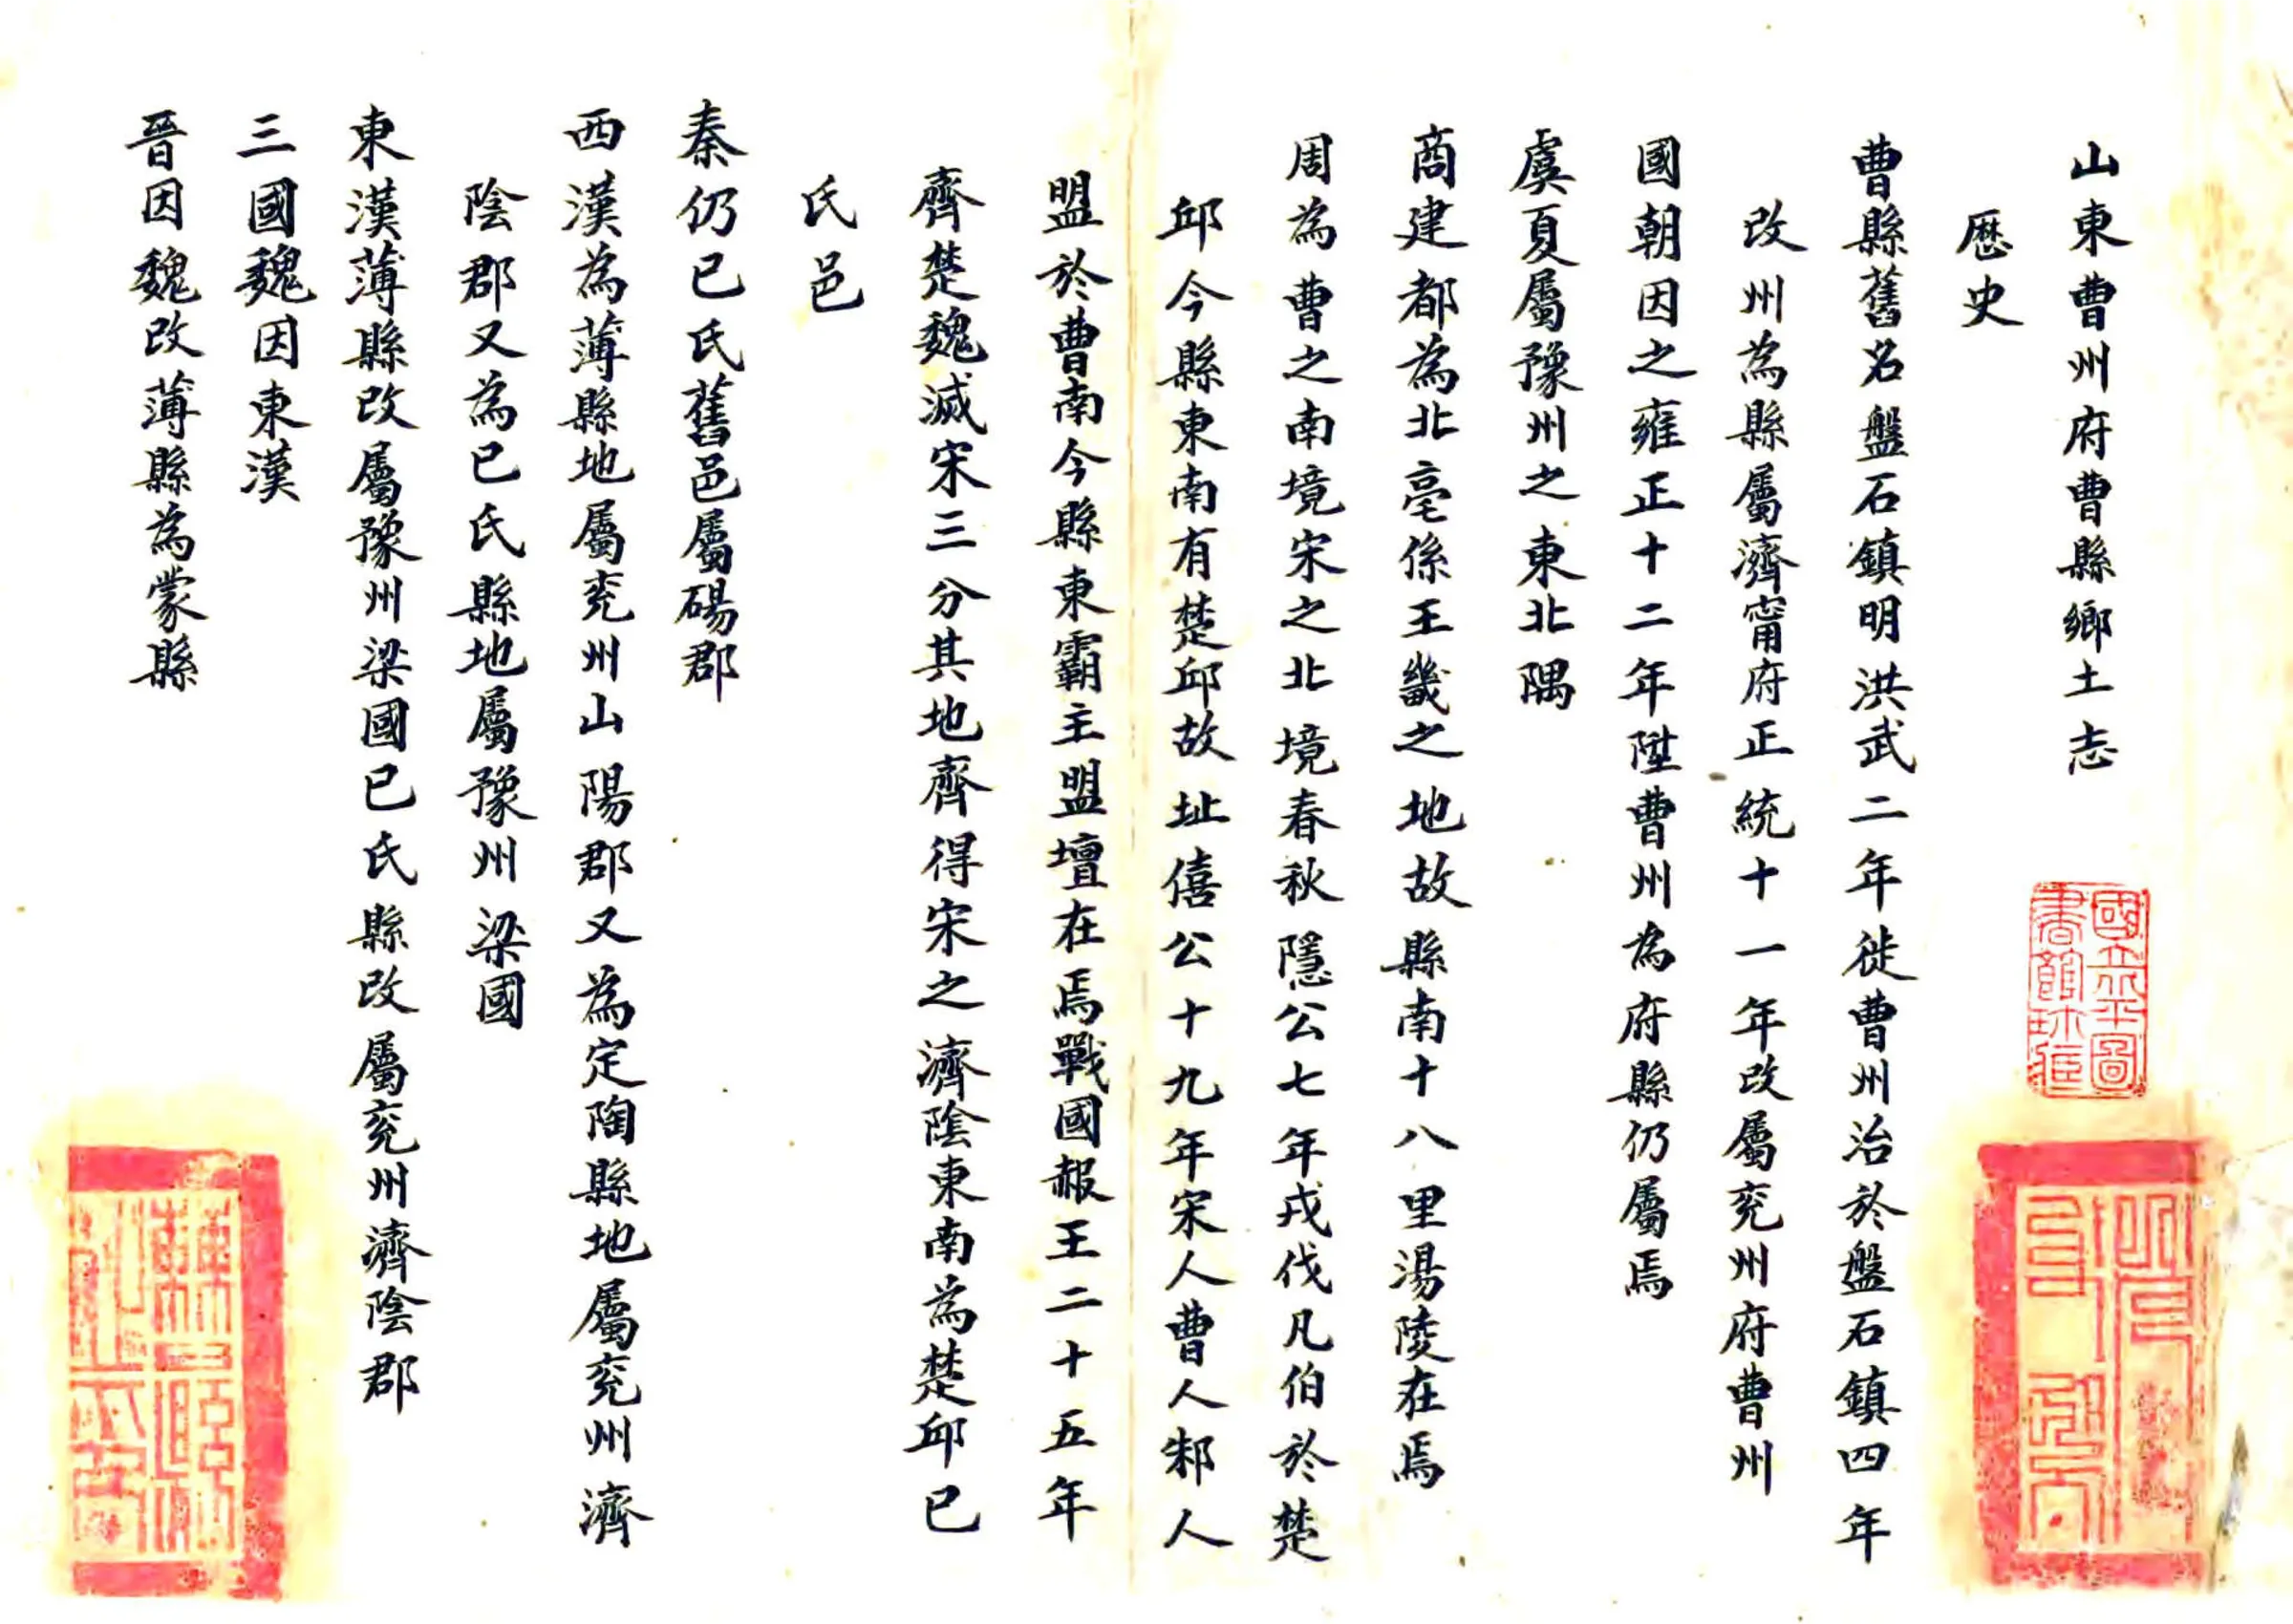 山東曹州府曹縣鄉土志
歷史
曹縣舊名盤石鎮明洪武二年徙曹州治於盤石鎮四年
改州為縣屬濟甯府正統十一年改屬兖州府曹州
國朝因之雍正十二年陞曹州為府縣仍屬焉
虞夏屬豫州之東北隅
商建都為北亳係王畿之地故縣南十八里湯陵在焉
周為曹之南境宋之北境春秋隱公七年戎伐凡伯於楚
邱今縣東南有楚邱故址僖公十九年宋人曹人邾人
盟於曹南今縣東霸主盟壇在焉戰國赧王二十五年
齊楚魏滅宋三分其地齊得宋之濟陰東南為楚邱已
氏邑
秦仍已氏舊邑屬碭郡
西漢為薄縣地屬兖州山陽郡又為定陶縣地屬兖州濟
陰郡又為已氏縣地屬豫州梁國
東漢薄縣改屬豫州梁國已氏縣改屬兖州濟陰郡
三國魏因東漢
晉因魏改薄縣為蒙縣
國立北平圖
書館珍藏